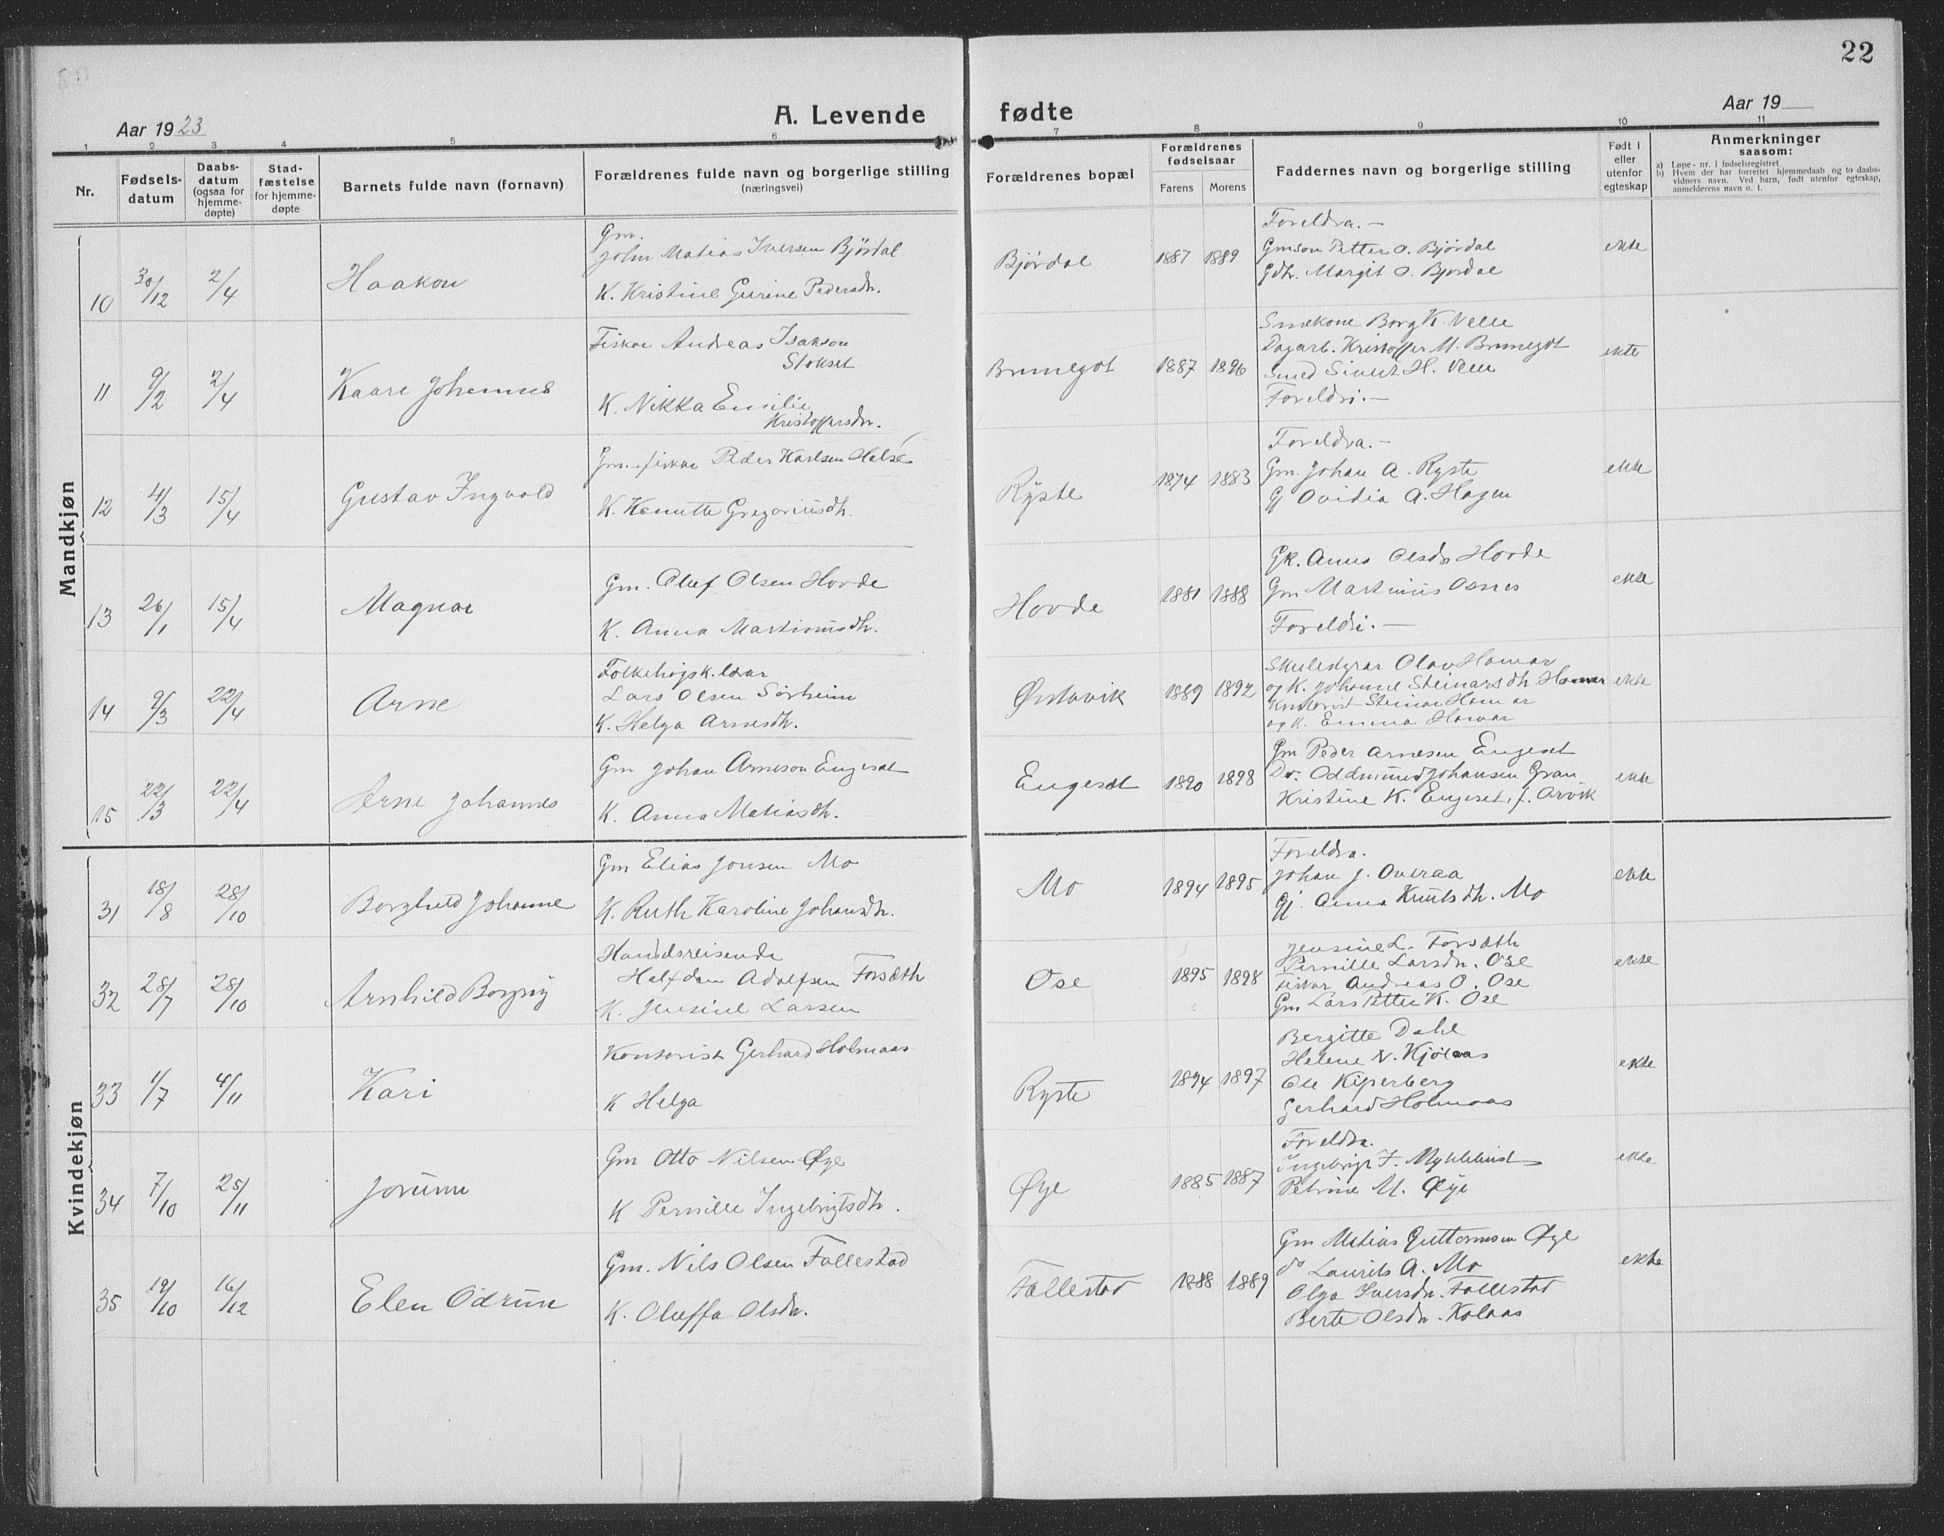 22
A. Levende fødte
Aar 1923
Aar 19
1 2 3 4 5 6 7 8 9 10 11
Nr.
Fødsels-
datum
Daabs-
datum
(ogsaa for
hjemme-
døpte)
Stad-
fæstelse
for hjemme-
døpte
Barnets fulde navn (fornavn)
Forældrenes fulde navn og borgerlige stilling
(næringsvei)
Forældrenes bopæl
Forældrenes
fødselsaar
Farens Morens
Faddernes navn og borgerlige stilling
Født i
eller
utenfor
egteskap
Anmerkninger
saasom:
a) Løpe-nr. i fødselsregistret
b) Hvem der har forrettet hjemmedaab og to daabs-
vidners navn. Ved barn, født utenfor egteskap,
anmelderens navn o. l.
Mandkjøn
10 30/12 2/4 Haakon
Gm.
John Matias Iversen Bjørdal
K. Kristine Gurine Pedersdr.
Bjørdal 1887 1889
Foreldra.-
Gmson Petter O. Bjørdal
Gdtr. Margit O. Bjørdal
ekte
11 9/2 2/4 Kaare Johannes
Fiskar Andreas Isakson
Stokset
K. Nikka Emilie
Kristoffersdr.
Brunegot 1887 1896
Smedkone Borg K. Velle
Dagarb. Kristoffer M. Brunegot
Smed Sivert H. Velle
Foreldri.-
ekte
12 4/3 15/4 Gustav Ingvald
Gm. fiskar Peder Karlsen Halse
K. Kanutte Gregoriusdtr.
Ryste 1874 1883
Foreldra.-
Gm. Johan A. Ryste
Gj Ovidia A. Hagen
ekte
13 26/1 15/4 Magnar
Gm. Oluf Olsen Hovde
K. Anna Martinusdtr.
Hovde 1881 1888
Gk. Anna Olsdr Hovde
Gm Martinus Osnes
Foreldri.-
ekte
14 9/3 22/4 Arne
Folkehøgsk.lærar
Lars Olsen Sørheim
K. Helga Arnesdtr.
Ørstavik 1889 1892
Skulestyrar Olav Hamar
og K. Johanne Steinarsdtr Hamar
Steinar Hamar
og K. Emma Hamar
ekte
15 22/3 22/4 Arne Johannes
Gm Johan Arneson Engeset
K. Anna Matiasdtr.
Engeset 1890 1898
Gm Peder Arnesen Engeset
Dr. Oddmund Johansen Gran
Kristine K. Engeset, f. Arvik
ekte
Kvindekjøn
31 18/8 28/10 Borghild Johanne
Gm Elias Jonsen Mo
K. Ruth Karoline Johansdtr.
Mo 1894 1895
Foreldra.
Johan J. Overaa
Gj. Anna Knutsdtr. Mo
ekte
32 28/7 28/10 Arnhild Borgny
Handelsreisende
Halfdan Adolfsen Forsæth
K. Jensine Larsen
Ose 1895 1898
Jensine L. Forsæth
Pernille Larsdr. Ose
Fiskar Andreas O. Ose
Gm Lars Petter K. Ose
ekte
33 1/7 4/11 Kari
Kontorist Gerhard Holmaas
K Helga
Ryste 1894 1897
Bergitte Dahl
Helene N. Kjølaas
Ole Kiperberg
Gerhard Holmaas
ekte
34 7/10 25/11 Jorunn
Gm Otto Nilsen Øye
K Pernille Ingebrigtsdtr.
Øye 1885 1887
Foreldra.
Ingebrigt F. Myklebust
Petrine M. Øye
ekte
35 19/10 16/12 Elen Odrun
Gm. Nils Olsen Follestad
K. Oluffa Olsdr.
Follestad 1888 1889
Gm Matias Guttormsen Øye
do Laurits A. Mo
Olga Iversdr. Follestad
Berte Olsdr. Kolaas
ekte